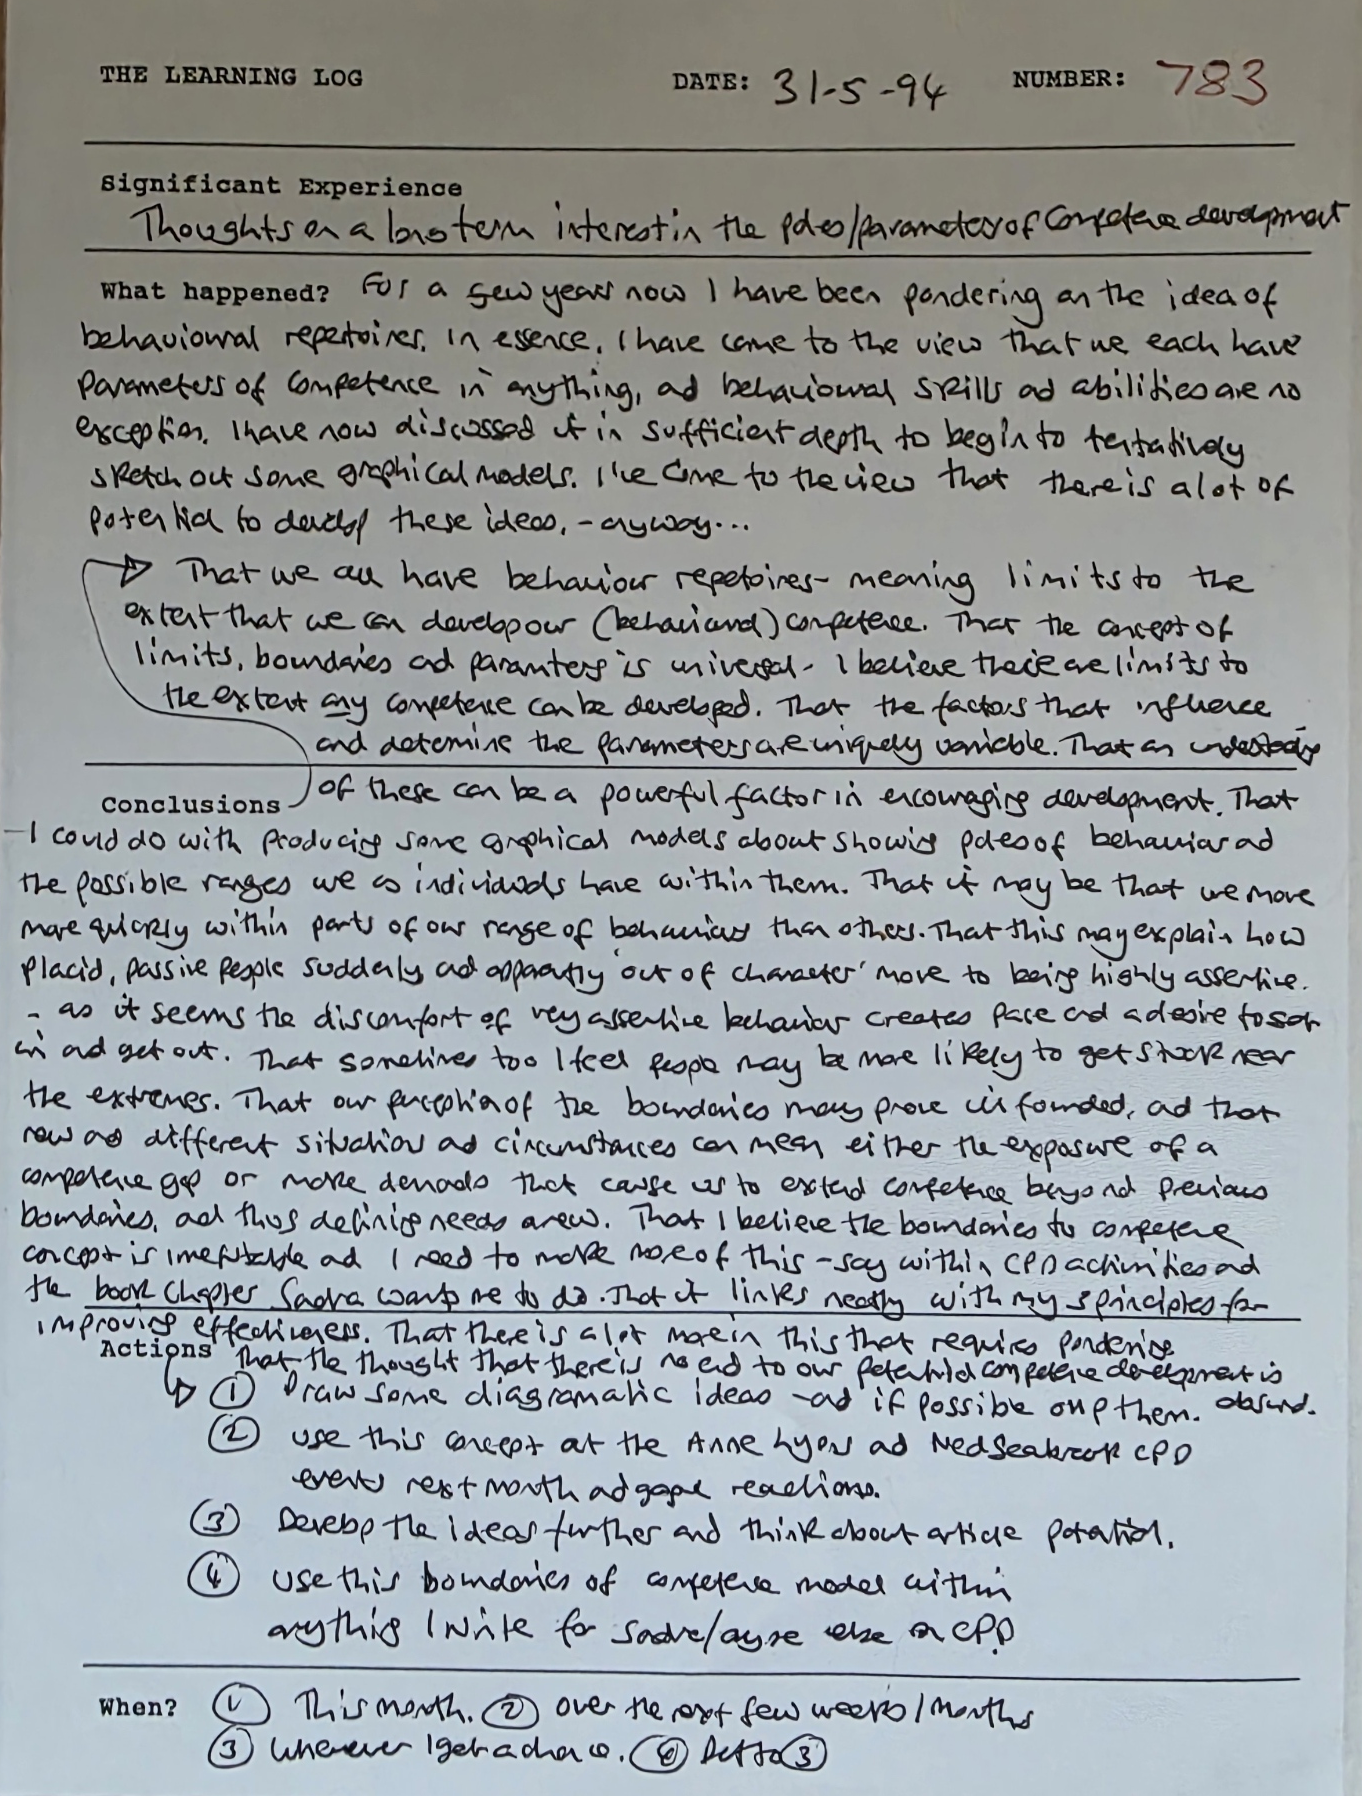 THE LEARNING LOG DATE: 31-5-94 NUMBER: 783
Significant Experience
Thoughts on a long term interest in the poles/parameters of Competence development
What happened? For a few years now I have been pondering on the idea of
behavioural repertoires. In essence, I have come to the view that we each have
parameters of competence in anything, ad behavioural skills ad abilities are no
exception. I have now discussed it in sufficient depth to begin to tentatively
sketch out some graphical models. I've come to the view that there is a lot of
potential to develop these ideas, - anyway...
That we all have behaviour repetoires - meaning limits to the
extent that we can develop our (behavioural) competence. That the concept of
limits, boundaries ad paramters is universal - I believe there are limits to
the extent any competence can be developed. That the factors that influence
and determine the parameters are uniquely variable. That an understanding
Conclusions of these can be a powerful factor in encouraging development. That
I could do with producing some graphical models about showing poles of behaviour ad
the possible ranges we as individuals have within them. That it may be that we move
more quickly within parts of our range of behaviours than others. That this may explain how
placid, passive people suddenly ad apparently 'out of character' move to being highly assertive.
- as it seems the discomfort of very assertive behaviour creates pace ad a desire to get
in ad get out. That sometimes too I feel people may be more likely to get stuck near
the extremes. That our perception of the boundaries may prove ill founded, ad that
new ad different situations ad circumstances can mean either the exposure of a
competence gap or make demands that cause us to extend competence beyond previous
boundaries, ad thus defining needs anew. That I believe the boundaries to competence
concept is irrefutable ad I need to make more of this - say within CPD activities ad
the book chapter Sadra wants me to do. That it links neatly with my 5 principles for
improving effectiveness. That there is a lot more in this that requires pondering
Actions That the thought that there is no end to our potential competence development is
① Draw some diagramatic ideas - ad if possible them. absurd.
② Use this concept at the Anne Lyons ad Ned Seabrook CPD
events next month ad gauge reactions.
③ Develop the ideas further and think about article potential.
④ Use this boundaries of competence model within
anything I write for Sadra/anyone else on CPD
When? ① This month. ② Over the next few weeks/months
③ Whenever I get a chance. ④ Ditto ③